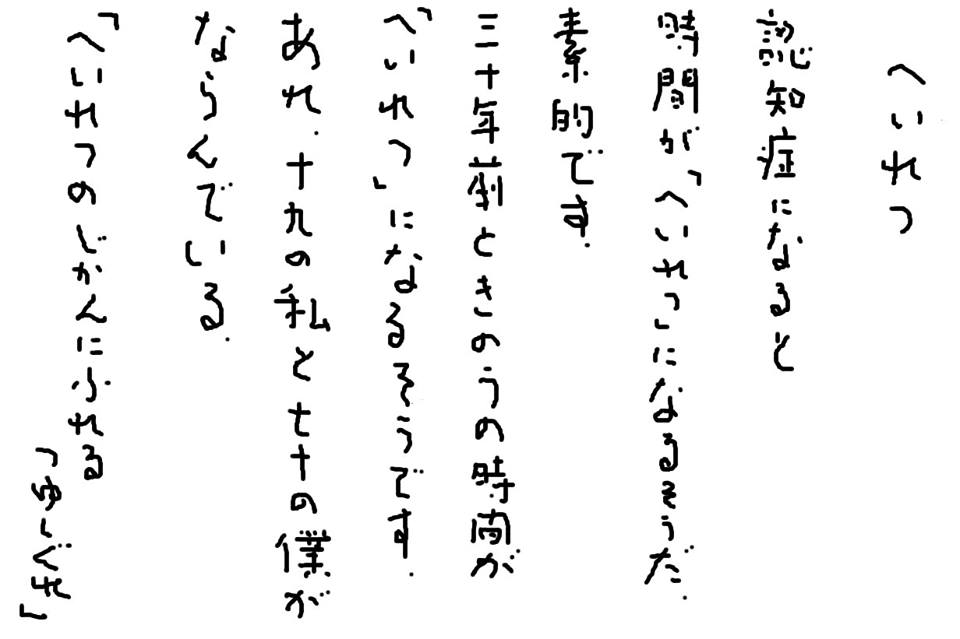 へいれつ
認知症になると
時間が「へいれつ」になるそうだ.
素的です.
三十年前ときのうの時間が
「へいれつ」になるそうです.
あれ.十九の私と七十の僕が
ならんでいる.
「へいれつのじかんにふれる
「ゆーぐれ」